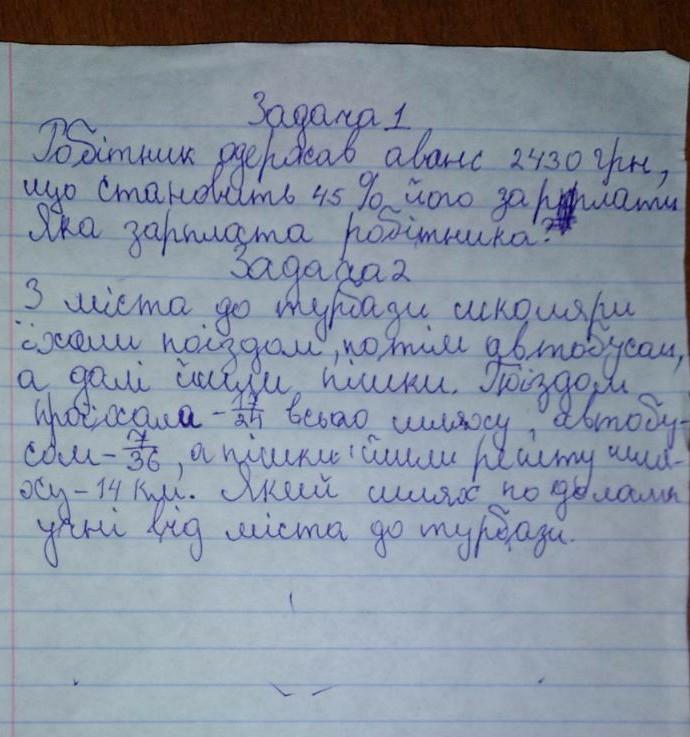 Задача 1
Робітник одержав аванс 2430 грн,
що становить 45 % його зарплати
Яка зарплата робітника?
Задача 2
З міста до турбази школярі
їхали поїздом, потім автобусом,
а далі йшли пішки. Поїздом
проїхали - 17/24 всього шляху, автобу-
сом - 7/36, а пішки йшли решту шля-
ху - 14 км. Який шлях подолали
учні від міста до турбази.